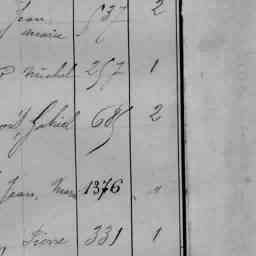 Jean
Marie 537 2
Michel 257 1
Gabriel 685 2
Jean, Marie 1376 "
Pierre 331 1